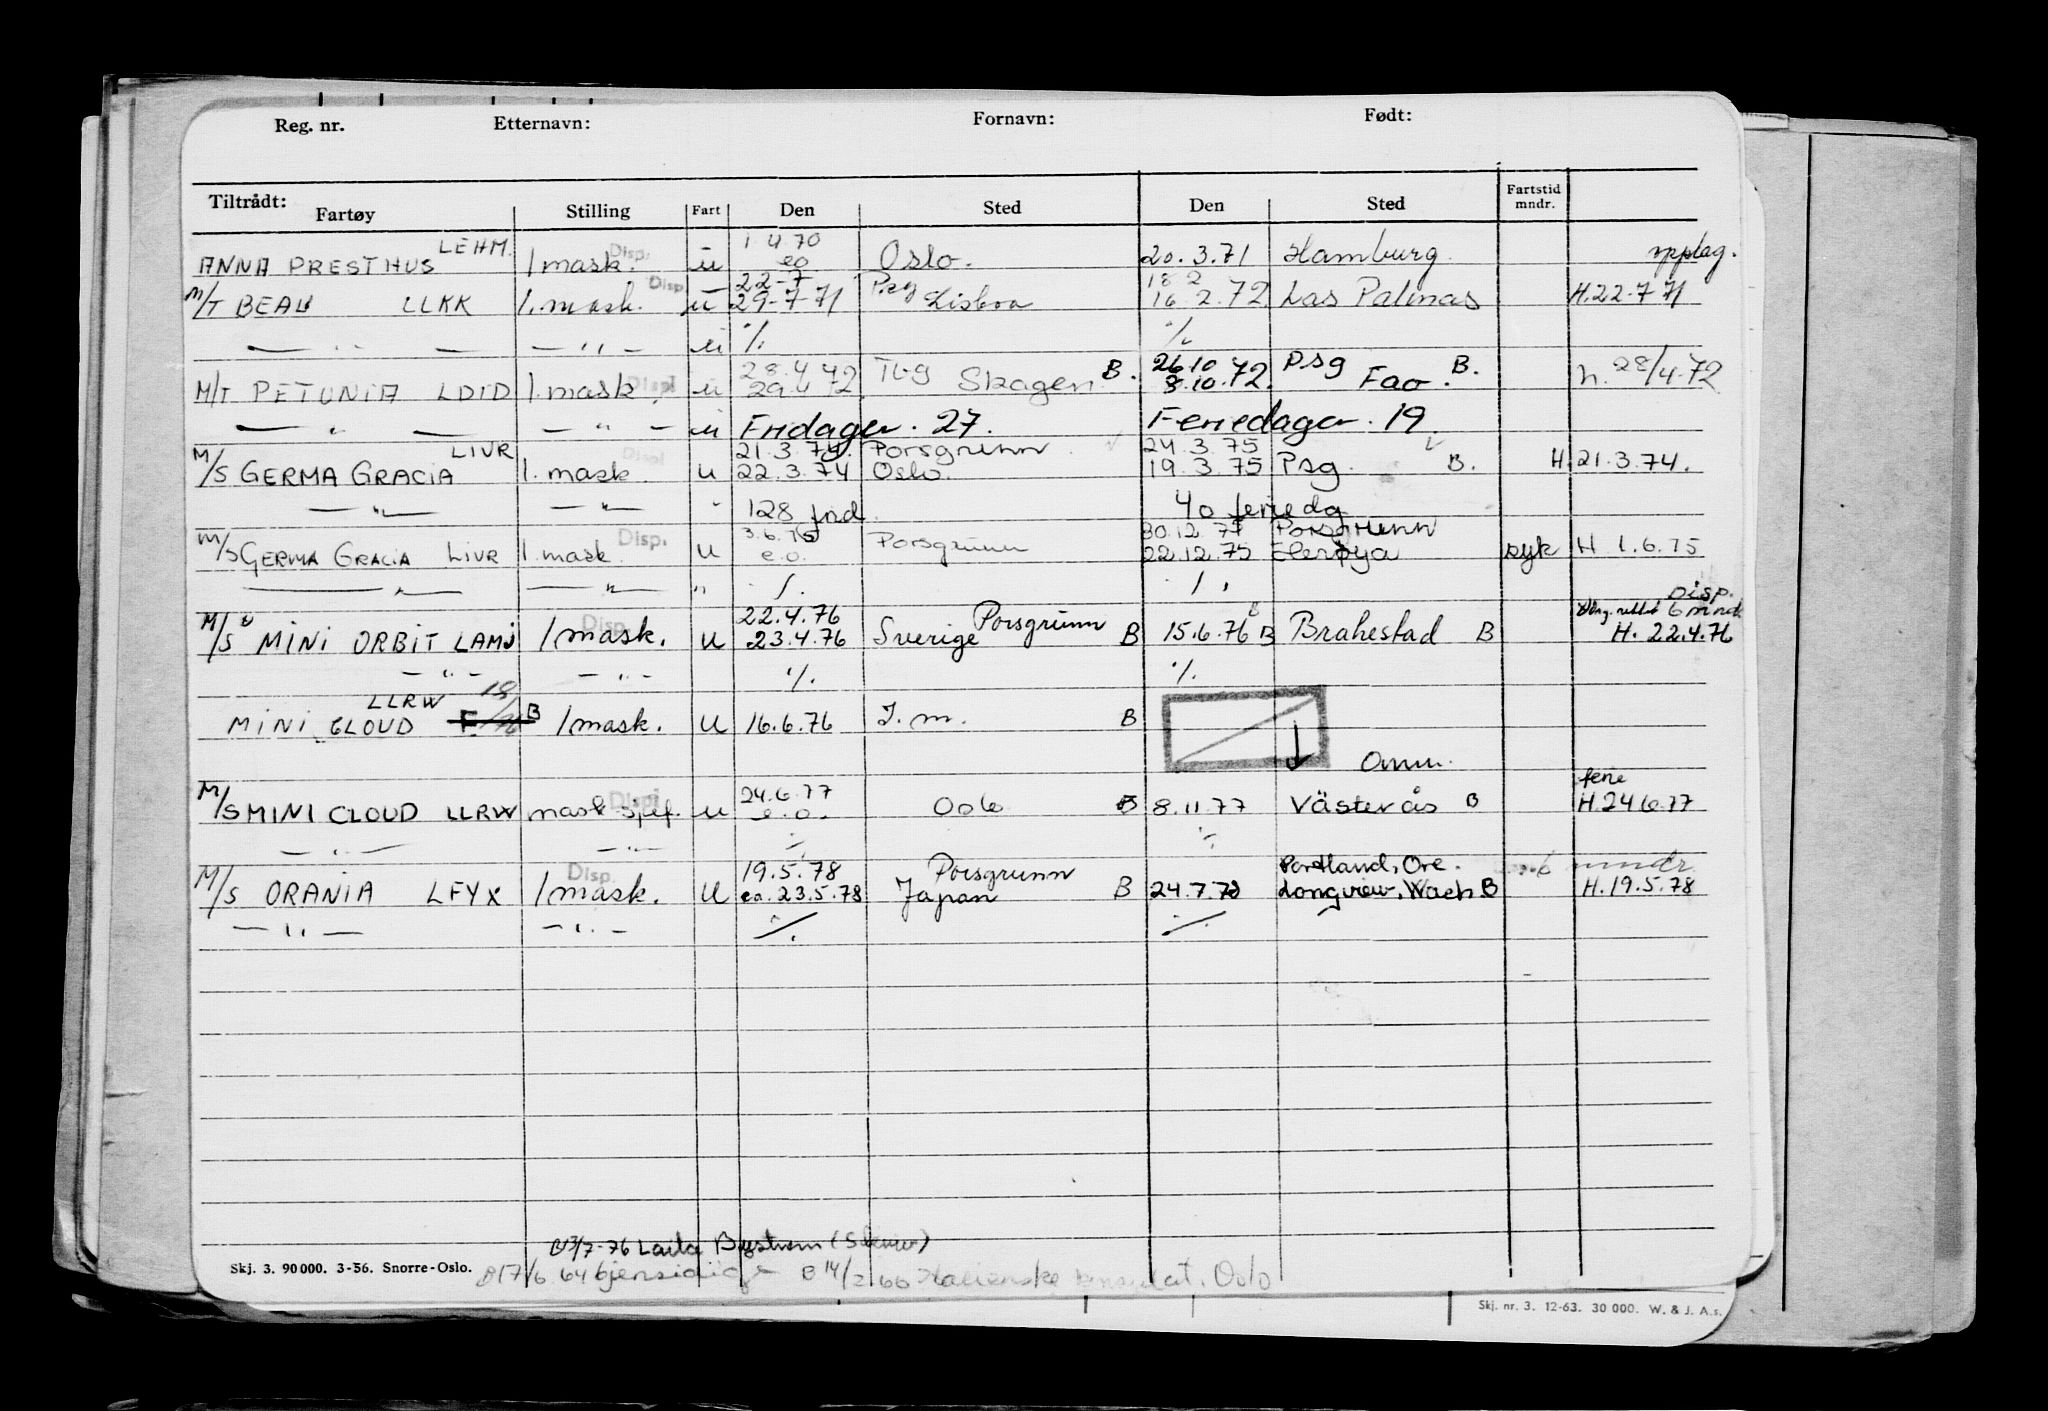 Reg. nr. Etternavn: Fornavn: Født:
Tiltrådt: Fartstid mndr.
Fartøy Stilling Fart Den Sted Den Sted
LEHM. Disp. 1 4.70
ANNA PRESTHUS 1 mask. u eo Oslo. 20.3.71 Hamburg opplag.
Disp. 22-7 Psg 18 2
M/T BEAU LLKK 1. mask. u 29-7-71 Lisboa 16.2.72 Las Palmas H.22.7 71
— " — — " — u ·/. ·/.
28.4 72 Tbg 26.10 Psg
M/T PETUNIA LDID 1. mask. Disp u 29.4 72 Skagen B. 8.10.72 Fao. B. h. 28/4.72
— " — — " — u Fridager. 27. Feriedager. 19.
LIVR Disp 21.3.74. Porsgrunn 24.3.75
M/S GERMA GRACIA 1. mask u 22.3.74 Oslo. 19.3.75 Psg. B. H.21.3.74.
— " — — " — " 128 frid. 40 feriedg
Disp. 3.6.75 30.12.77 Porsgrunn
M/S GERMA GRACIA LIVR 1. mask. u e.o. Porsgrunn 22.12.75 syk H 1.6.75
— " — — " — " ·/. ·/.
Disp. 22.4.76 Porsgrunn Disp.
6 mnd
M/S MINI ORBIT LAMJ 1 mask. u 23.4.76 Sverige B 15.6.76 B Brahestad B H. 22.4.76
— " — — " — ·/. ·/.
LLRW 18/
MINI CLOUD B 1 mask. u 16.6.76 I. m. B
Omm.
Disp 24.6.77 ferie
M/S MINI CLOUD LLRW mask spes. u e.o. Oslo B 8.11.77 Västerås B H.24 6.77
— " — — " — ·/. ·/.
Disp. 19.5.78 Porsgrunn Portland, Ore. 6 mndr
M/S ORANIA LFYX 1 mask. u ca. 23.5.78 Japan B 24.7.78 Longview, Wash B H.19.5.78
— " — — " — ·/. ·/.
B 13/7-76 Laila Bystrøm (Skien)
Skj. 3. 90 000. 3-56. Snorre-Oslo. B 17/6 64 Gjensidige B 14/2 66 Italienske konsulat. Oslo
Skj. nr. 3. 12-63. 30 000. W. & J. A.s.